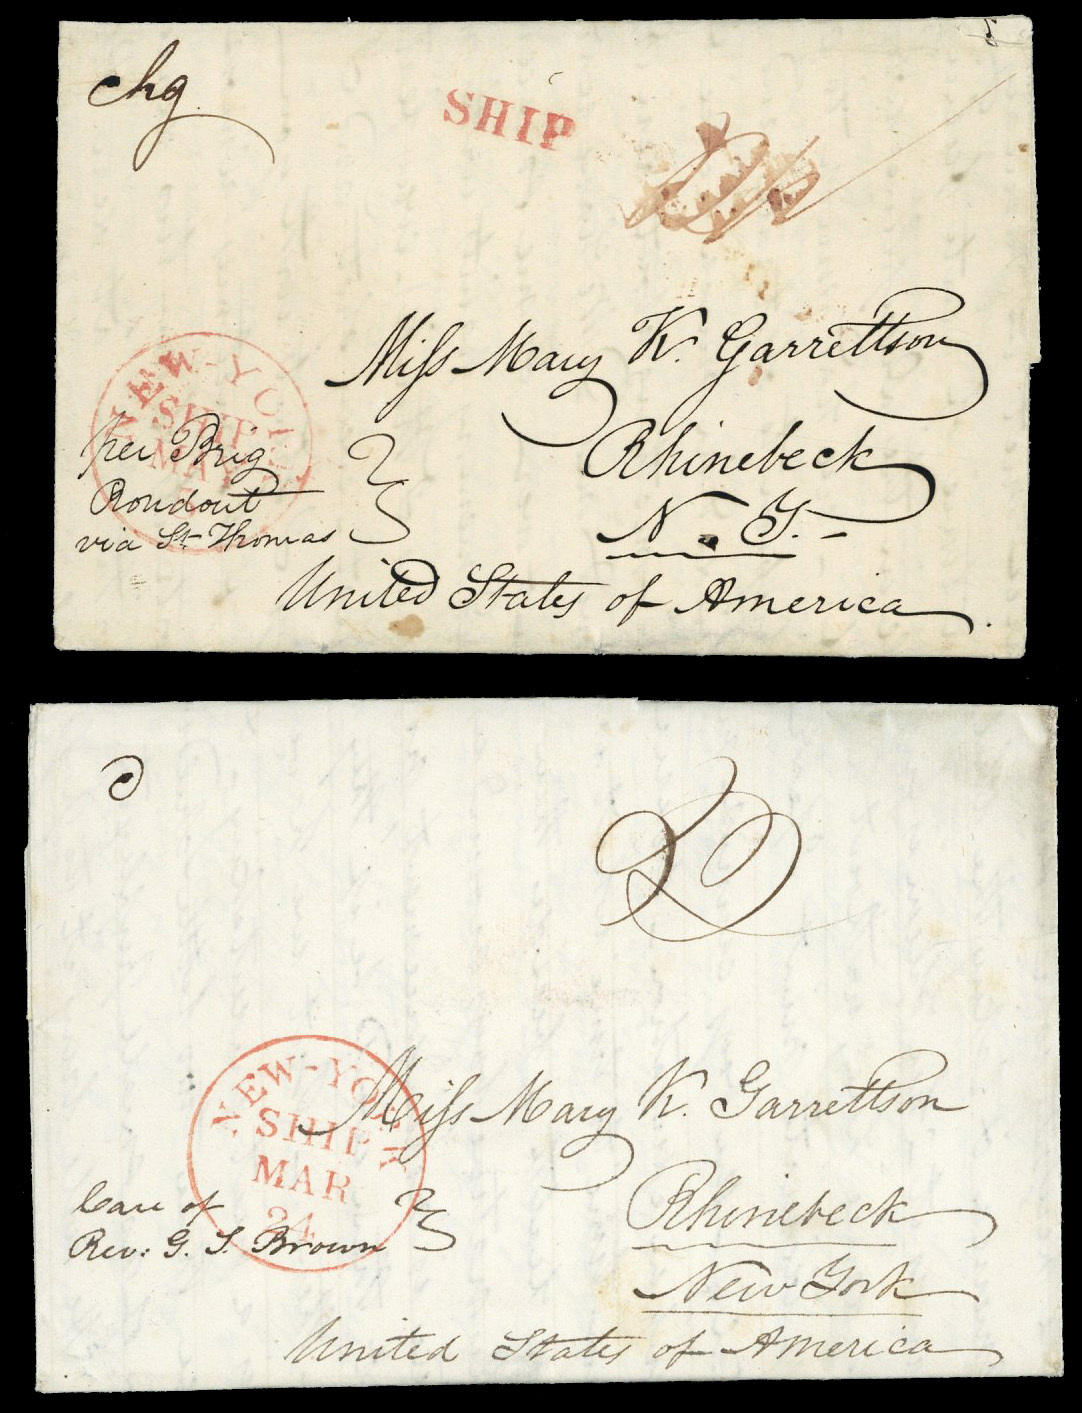 chg
SHIP
Miss Mary K. Garrettson
NEW-YORK
SHIP
MAY
per Brig
Rondout
via St Thomas
Rhinebeck
N. Y.
United States of America
Miss Mary K. Garrettson
NEW-YORK
SHIP
MAR
24
Care of
Rev: G. S. Brown
Rhinebeck
New York
United States of America